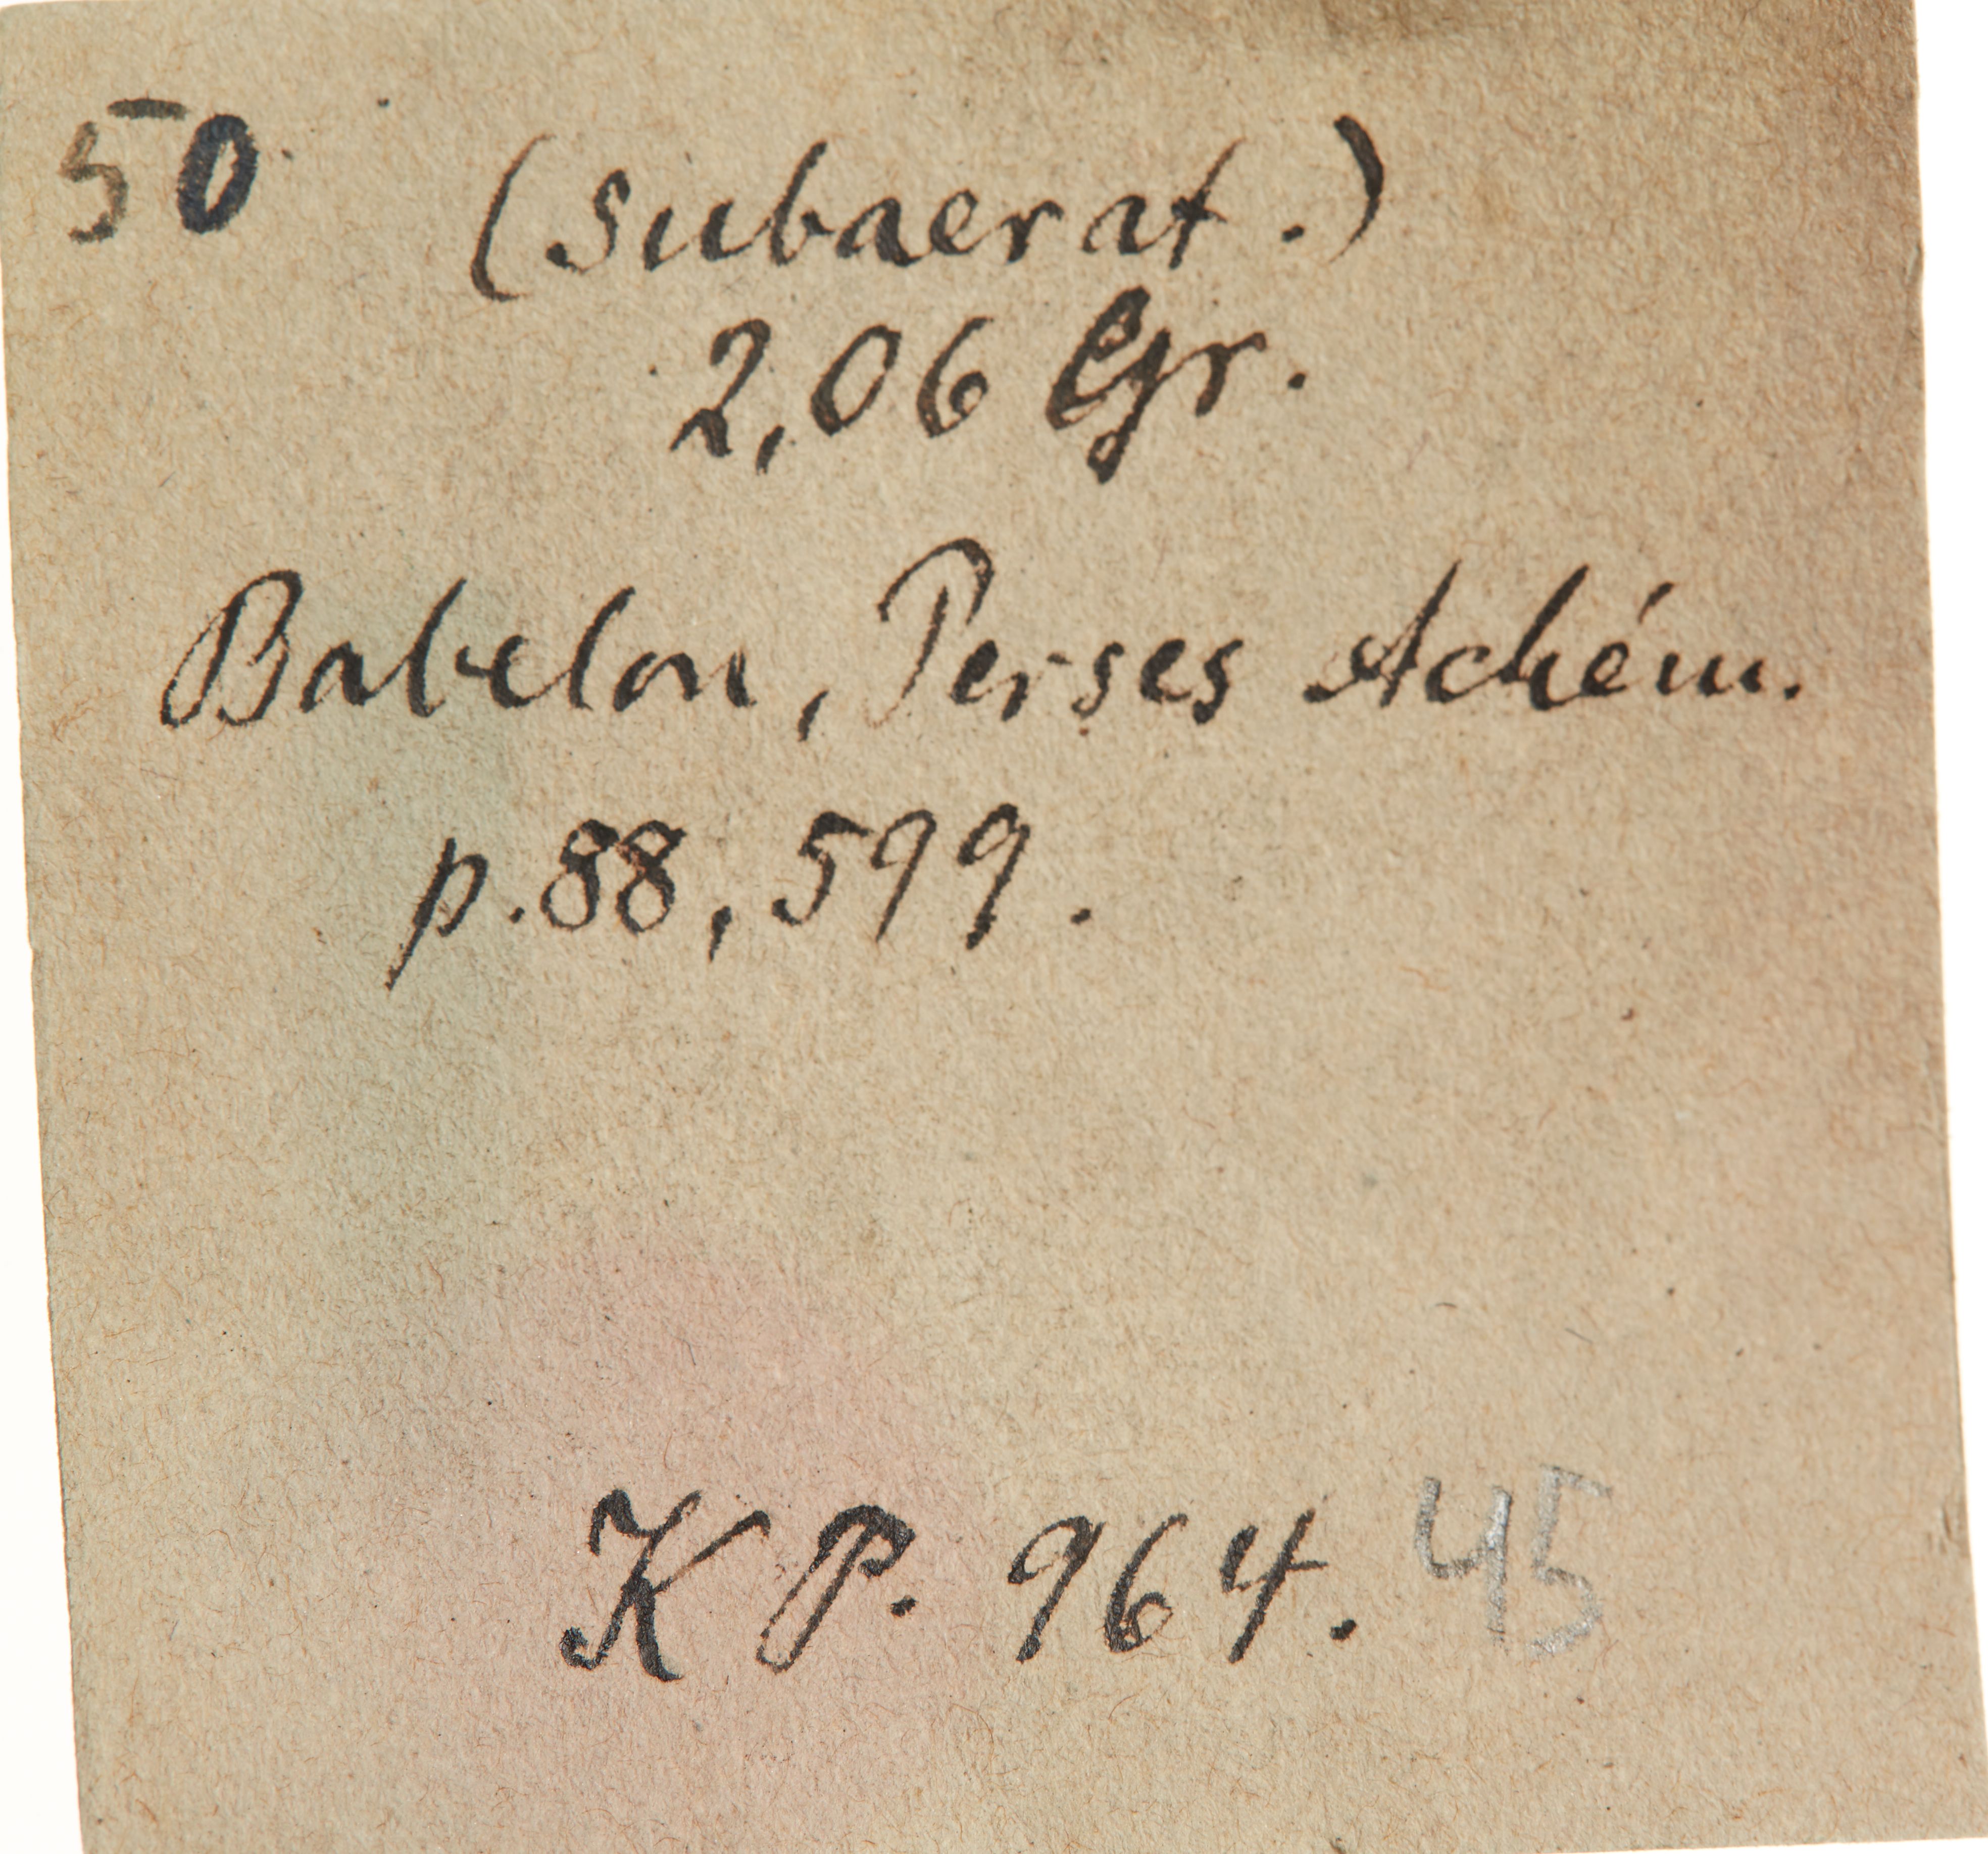 50 (subaerat.)
2,06 Gr.
Babelon, Perses Achém.
p. 88, 599.
K P. 964. 45